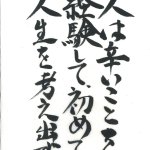 人は辛いことを
経験して、初めて
人生を考え出す